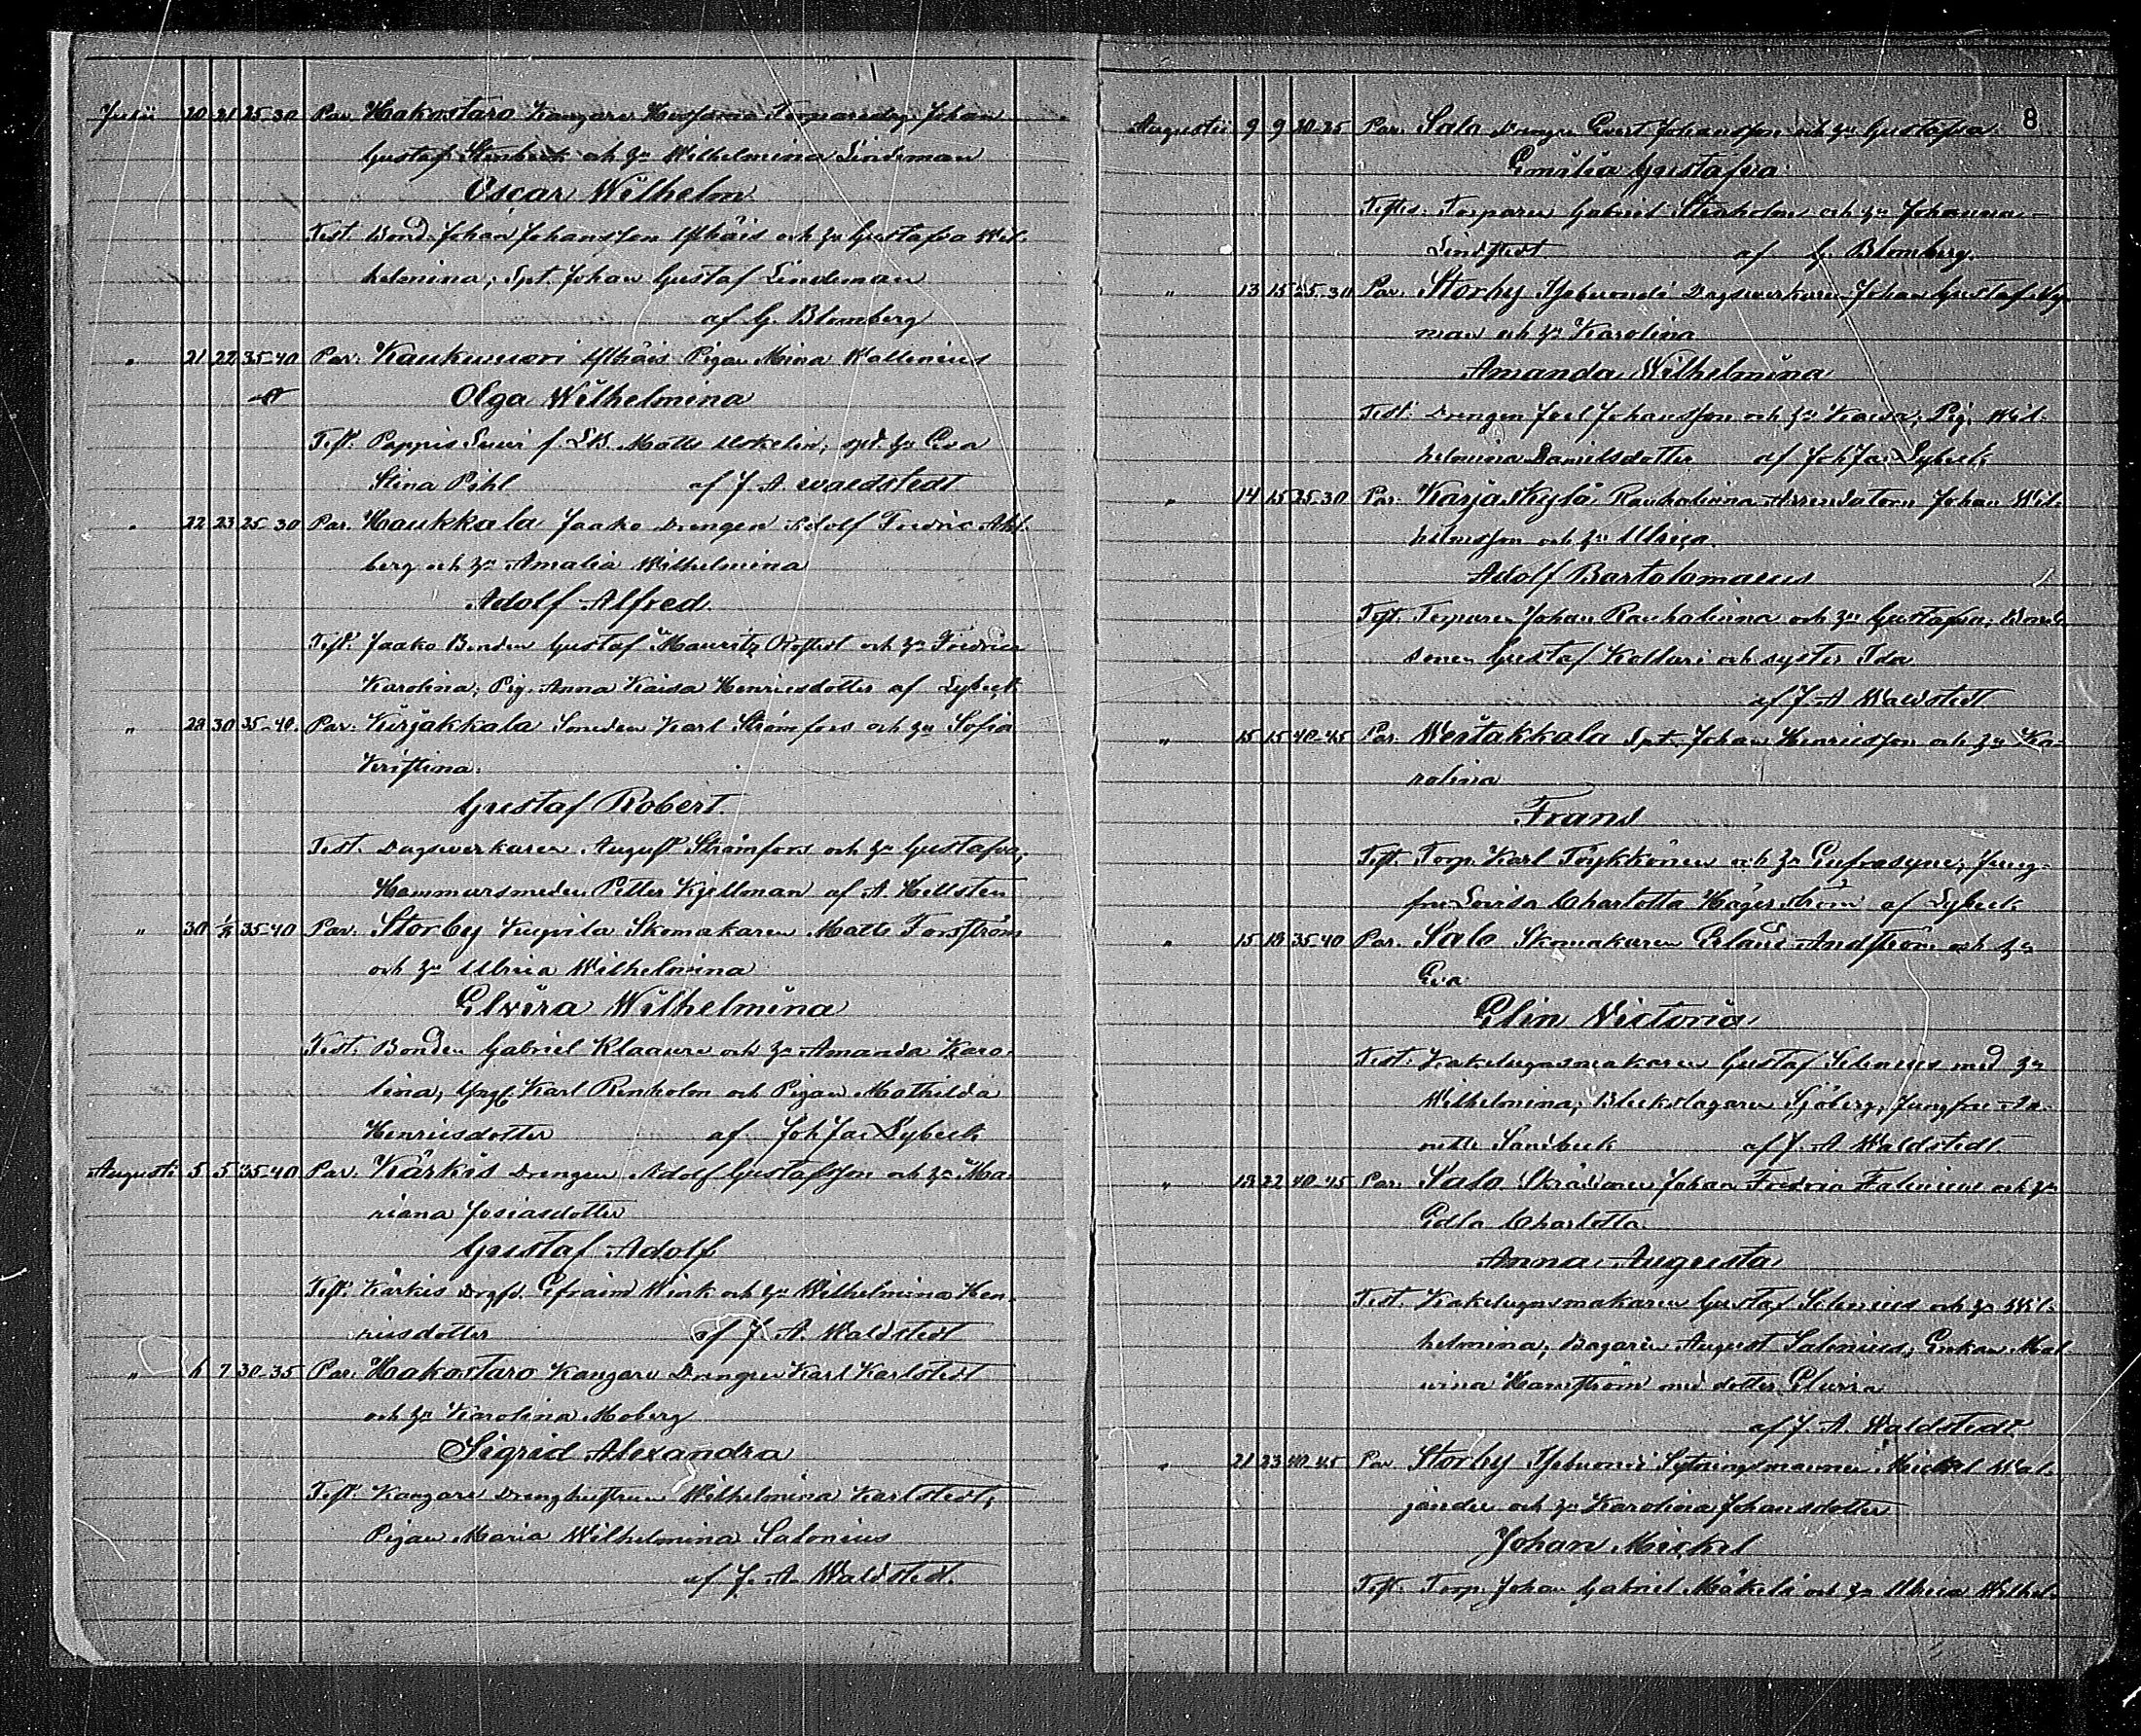 Julii 20 21 25-30 Par. Hakostaro Kangare Johan
Gustaf Stenbeck och h:u Wilhelmina Lindeman
Oscar Wilhelm
Test. Bond. Johan Johansson Yhäis och h:u Gustafva Wil-
helmina; Spt. Johan Gustaf Lindeman
af G. Blomberg
" 21 22 35-40 Par. Kaukuwori Yhäis Pigan Mina Wallenius
Olga Wilhelmina
Test. Matts; spt. h:u Eva
Stina Pihl af J. A. Waldstedt
" 22 23 25-30 Par. Haukkala Jaako Drengen Adolf Fredric Ahl-
berg och h:u Amalia Wilhelmina
Adolf Alfred
Test. Jaako Bonden Gustaf Mauritz och h:u Fredrica
Karolina; Pig. Anna Kaisa Henricsdotter af Lybeck
" 29 30 35-40 Par. Kirjakkala Smeden Karl Strömfors och h:u Sofia
Kristina
Gustaf Robert
Test. Dagswerkaren August Strömfors och h:u Gustafva;
Hammarsmeden Petter Kjellman af A. Hellsten
" 30 1/8 35-40 Par. Storby Skomakaren Matts Forsström
och h:u Ulrica Wilhelmina
Elvira Wilhelmina
Test. Bonden Gabriel Klaaure och h:u Amanda Karo-
lina; Karl Renholm och Pigan Mathilda
Henricsdotter af Joh Jac Lybeck
Augusti 5 5 35-40 Par. Kärkis Drengen Adolf Gustafsson och h:u Ma-
riana Josiasdotter
Gustaf Adolf
Test. Kärkis Efraim Wink och h:u Wilhelmina Hen-
ricsdotter af J. A. Waldstedt
" 6 7 30-35 Par. Hakostaro Kangare Drengen Karl Karlstedt
och h:u Karolina Moberg
Sigrid Alexandra
Test. Kangare Drenghustrun Wilhelmina Karlstedt;
Pigan Maria Wilhelmina Salonius
af J. A. Waldstedt
8
Augusti 9 9 20-25 Par. Salo Drengen Evert Johansson och h:u Gustafva
Emilia Gustafva
Testes. Torparen Gabriel Stenholm och h:u Johanna
Lindstedt af G. Blomberg
" 13 15 25-30 Par. Storby Dagswerkaren Johan Gustaf Ny-
man och h:u Karolina
Amanda Wilhelmina
Test. Drengen Joel Johansson och h:u Kaisa; Pig. Wil-
helmina Danielsdotter af Joh Jac Lybeck
" 14 15 25-30 Par. Karjaskylä Rauhalinna Arrendatorn Johan Wil-
helmsson och h:u Ulrica
Adolf Bartolomaeus
Test. Torparen Johan Rauhalinna och h:u Gustafva; Bond-
sonen Gustaf Kollari och syster Ida
af J. A. Waldstedt
" 15 15 40-45 Par. Wertakkala Spt. Johan Henricsson och h:u Ka-
rolina
Frans
Test. Torp. Karl Töykkönen och h:u Eufrosyne; Jung-
fru Lovisa Charlotta Hägerström af Lybeck
" 15 18 35-40 Par. Salo Skomakaren Erland Andström och h:u
Eva
Elin Victoria
Test. Kakelugnsmakaren Gustaf Selenius med h:u
Wilhelmina; Bleckslagaren Sjöberg; Jungfru An-
nette Sandbeck af J. A. Waldstedt
" 18 22 40-45 Par. Salo Skräddaren Johan Fredric Falenius och h:u
Edla Charlotta
Anna Augusta
Test. Kakelugnsmakaren Gustaf Selenius och h:u Wil-
helmina; Bagaren August Salonius; Enkan Mal-
wina Hamström med dotter Elvira
af J. A. Waldstedt
" 21 23 40-45 Par. Storby Sytningsmannen Mickel Wal-
jander och h:u Karolina Johansdotter
Johan Mickel
Test. Torp. Johan Gabriel Mäkelä och h:u Ulrica Wilhel-